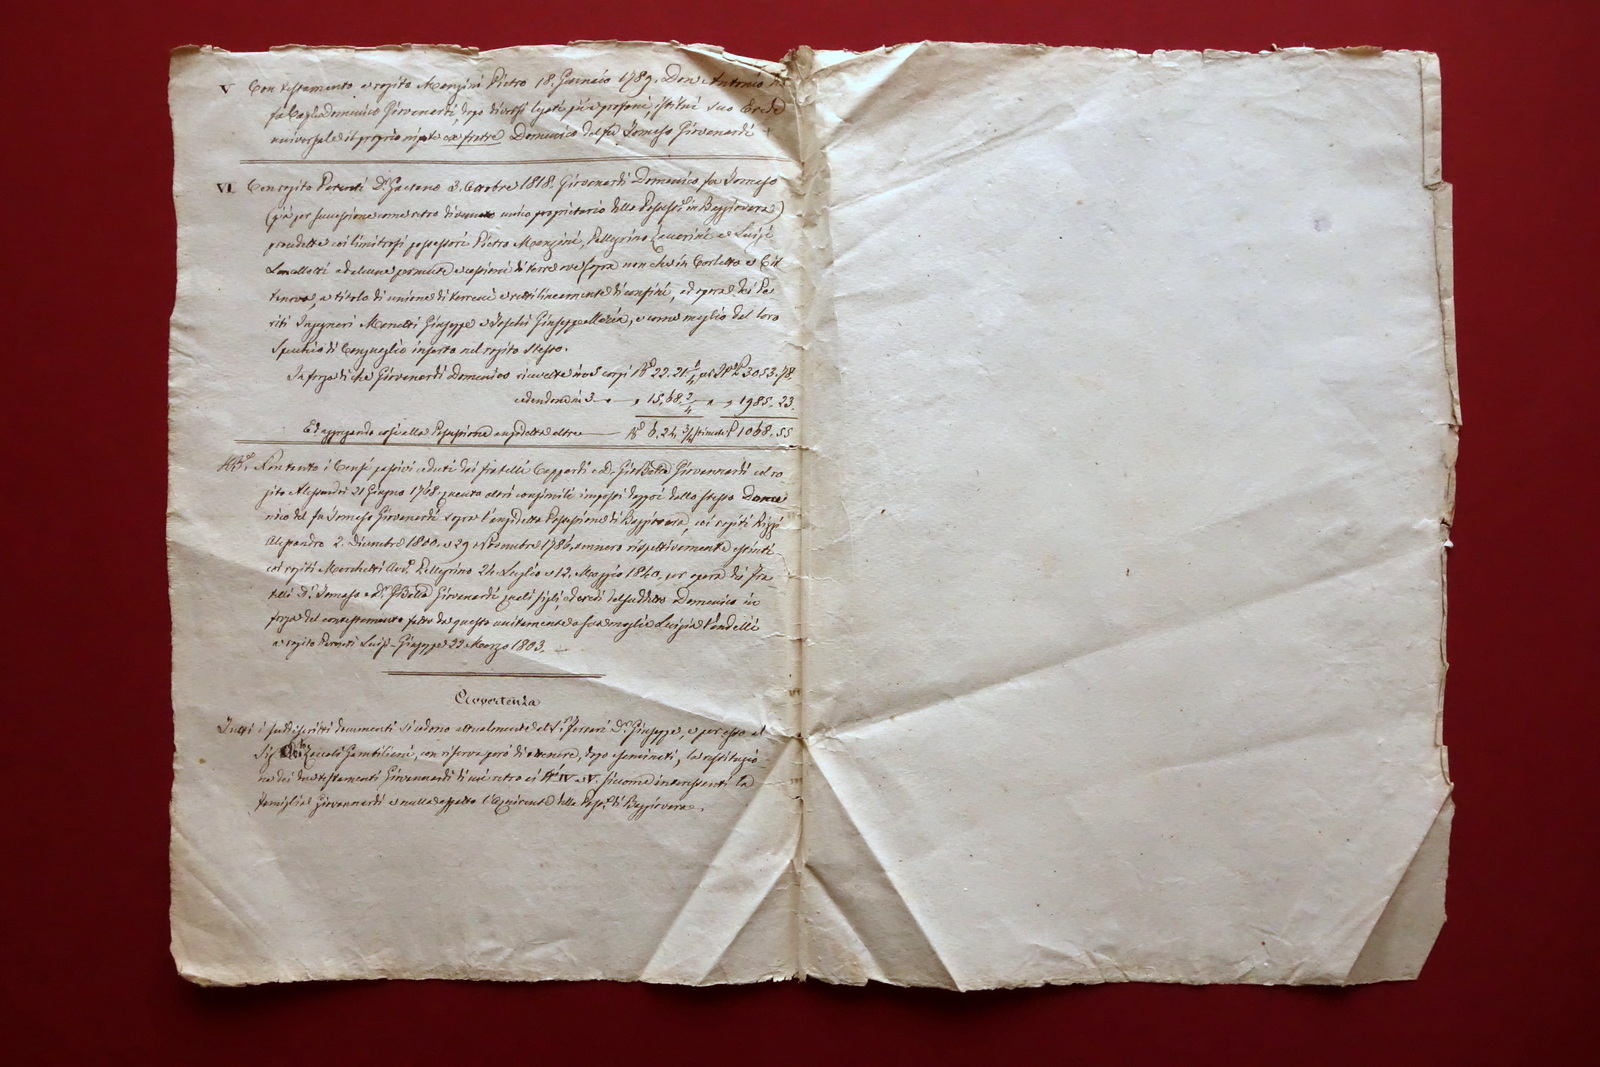 V Con testamento a rogito Manzini Pietro 18. Gennaio 1789. Don Antonio
fu Domenico Giovenardi dopo diversi legati pii e profani, istituì suo Erede
universale il proprio nipote ex fratre Domenico del fu Tomaso Giovenardi
VI. Con rogito Dr. Gaetano 3. Ottobre 1818. Giovenardi Domenico fu Tomaso
(già per successione come retro divenuto unico proprietario della Possess.e in Baggiovara)
coi limitrofi possessori Pietro Manzini, Pellegrino Zuccarini e Luigi
ed alcune permute e cessioni di terre ove sopra non che in Corletto e Cit
tanova, a titolo di unione di terreni e rettilineamento di confini, ed opera dei Pe
riti Ingegneri Manetti Giuseppe e Toschi Giuseppe Maria, e come meglio dal loro
Specchio di Conguaglio inserto nel rogito stesso.
In forza di che Giovenardi Domenico ricevette in corpi 22. 21 1/4 3053. 78.
cedendone in 3 15, 68. 2/4 1985. 23.
Ed aggiungendo così alla Possessione anzidetta altre 6. 24 3/4 1068. 55
NB. Che tanto i Censi passivi ceduti dai fratelli e Dn. Gio Batta Giovannardi col ro
gito Alessandri 21 Giugno 1768. quanto altri consimili imposti doppoi dallo stesso Dome
nico del fu Tomaso Giovenardi sopra l'anzidetta Possessione di Baggiovara, coi rogiti
Alessandro 2. Dicembre 1800. e 29 Novembre 1786. vennero rispettivamente estinti
coi rogiti Marchetti Avv. Pellegrino 24. Luglio e 12. Maggio 1840. per opera dei Fra
telli Dr. Tomaso e Dr. GBatta Giovenardi quali figli, ed eredi del suddetto Domenico in
forza del testamento fatto da questo unitamente a sua moglie Luigia Vandelli
a rogito Luigi-Giuseppe 22 Marzo 1803.
Avvertenza
Tutti i suddescritti documenti si cedono attualmente al Sig. Ferrari Dr. Giuseppe, e per esso al
Sig. Zoccoli Gentiliani, con riserva però di ottenere, dopo esaminati, la restituzio
ne dei due testamenti Giovennardi di cui retro ai Nri. IV e V. siccome interessanti la
famiglia Giovennardi e nulla affatto l'acquirente della Poss.e di Baggiovara.